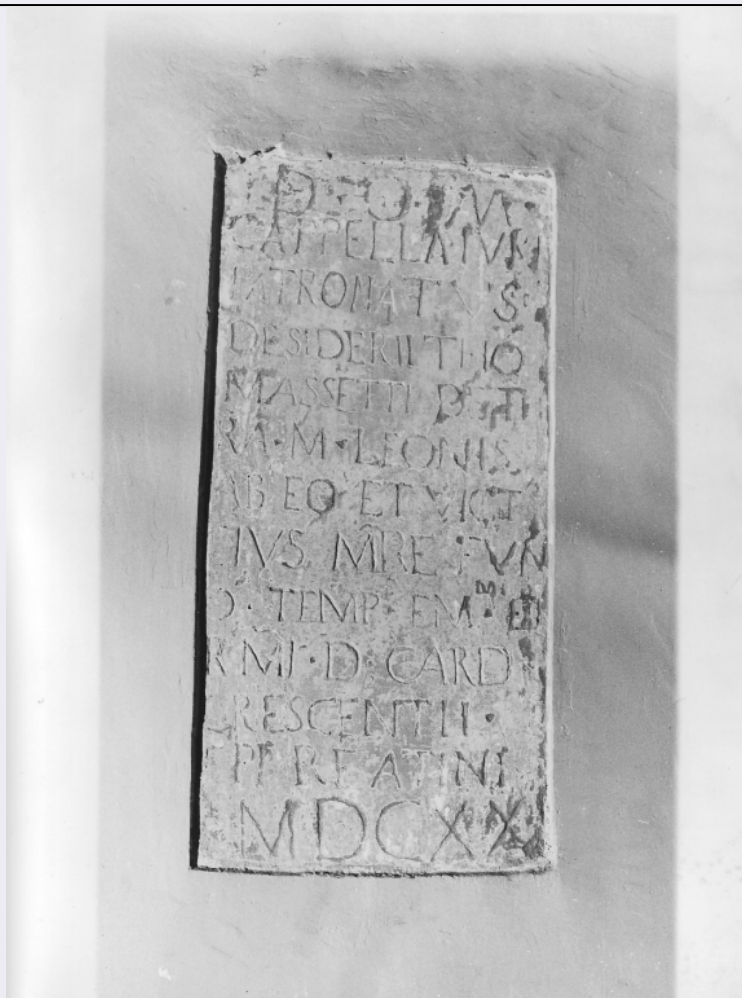 D · O · M ·
CAPPELLA IVRI
PATRONATVS
DESIDERII THO
MASSETTI DE TI
RA · M · LEONIS
AB EO ET VICT
IVS MRE FVN
TEMP · EM · ET
RMI · D · CARD
CRESCENTII ·
EPI REATINI
MDCXX